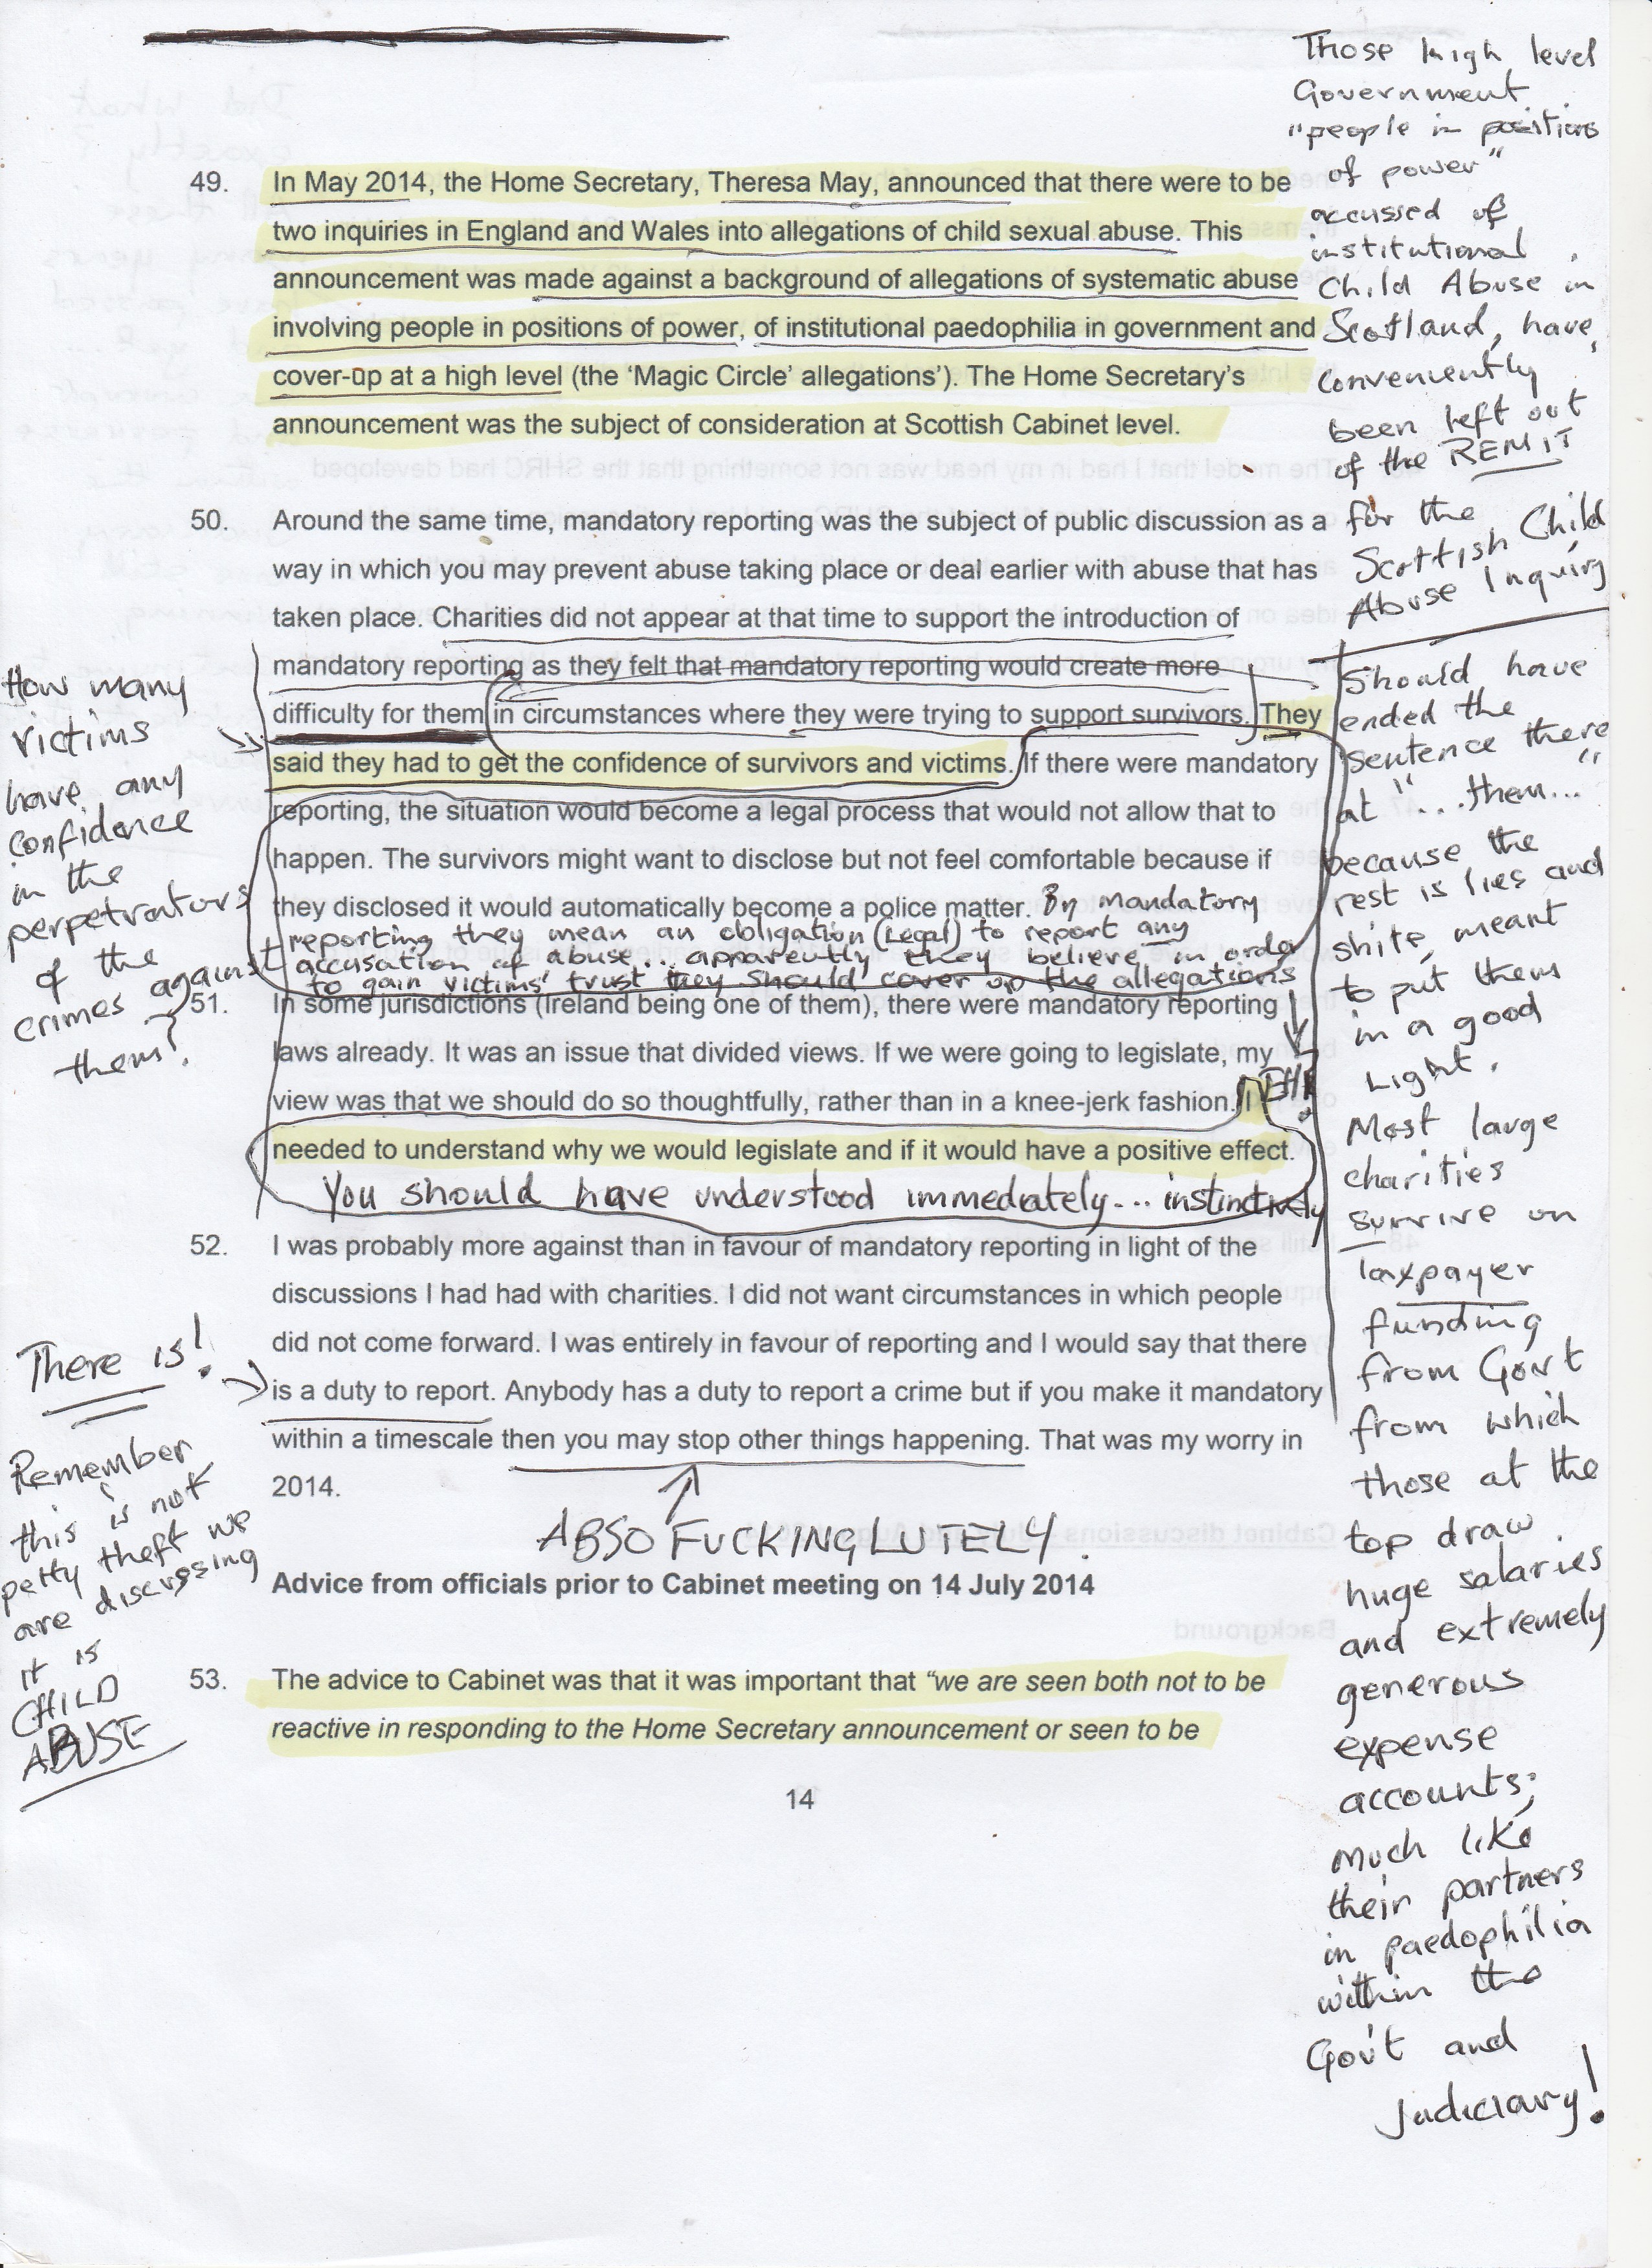 Those high level
Government
"people in positions
of power"
accussed of
institutional
Child Abuse in
Scotland, have
conveniently
been left out
of the REMIT
for the
Scottish Child
Abuse Inquiry
49. In May 2014, the Home Secretary, Theresa May, announced that there were to be
two inquiries in England and Wales into allegations of child sexual abuse. This
announcement was made against a background of allegations of systematic abuse
involving people in positions of power, of institutional paedophilia in government and
cover-up at a high level (the ‘Magic Circle’ allegations’). The Home Secretary’s
announcement was the subject of consideration at Scottish Cabinet level.
50. Around the same time, mandatory reporting was the subject of public discussion as a
way in which you may prevent abuse taking place or deal earlier with abuse that has
taken place. Charities did not appear at that time to support the introduction of
mandatory reporting as they felt that mandatory reporting would create more
difficulty for them in circumstances where they were trying to support survivors. They
said they had to get the confidence of survivors and victims. If there were mandatory
reporting, the situation would become a legal process that would not allow that to
happen. The survivors might want to disclose but not feel comfortable because if
they disclosed it would automatically become a police matter. By Mandatory
reporting they mean an obligation (Legal) to report any
accusation of abuse... apparently they believe in order
to gain victims' trust they should cover up the allegations
EH!
How many
victims
have any
confidence
in the
perpetrators
of the
crimes against
them?
Should have
ended the
sentence there
at "...them..."
because the
rest is lies and
shite, meant
to put them
in a good
Light.
Most large
charities
survive on
taxpayer
funding
from Gov't
from which
those at the
top draw
huge salaries
and extremely
generous
expense
accounts;
much like
their partners
in paedophilia
within the
Gov't and
Judiciary!
51. In some jurisdictions (Ireland being one of them), there were mandatory reporting
laws already. It was an issue that divided views. If we were going to legislate, my
view was that we should do so thoughtfully, rather than in a knee-jerk fashion. I
needed to understand why we would legislate and if it would have a positive effect.
You should have understood immediately... instinctively
52. I was probably more against than in favour of mandatory reporting in light of the
discussions I had had with charities. I did not want circumstances in which people
did not come forward. I was entirely in favour of reporting and I would say that there
is a duty to report. Anybody has a duty to report a crime but if you make it mandatory
within a timescale then you may stop other things happening. That was my worry in
2014.
There is!
Remember
this is not
petty theft we
are discussing
it is
CHILD
ABUSE
ABSOFUCKINGLUTELY.
Advice from officials prior to Cabinet meeting on 14 July 2014
53. The advice to Cabinet was that it was important that “we are seen both not to be
reactive in responding to the Home Secretary announcement or seen to be
14